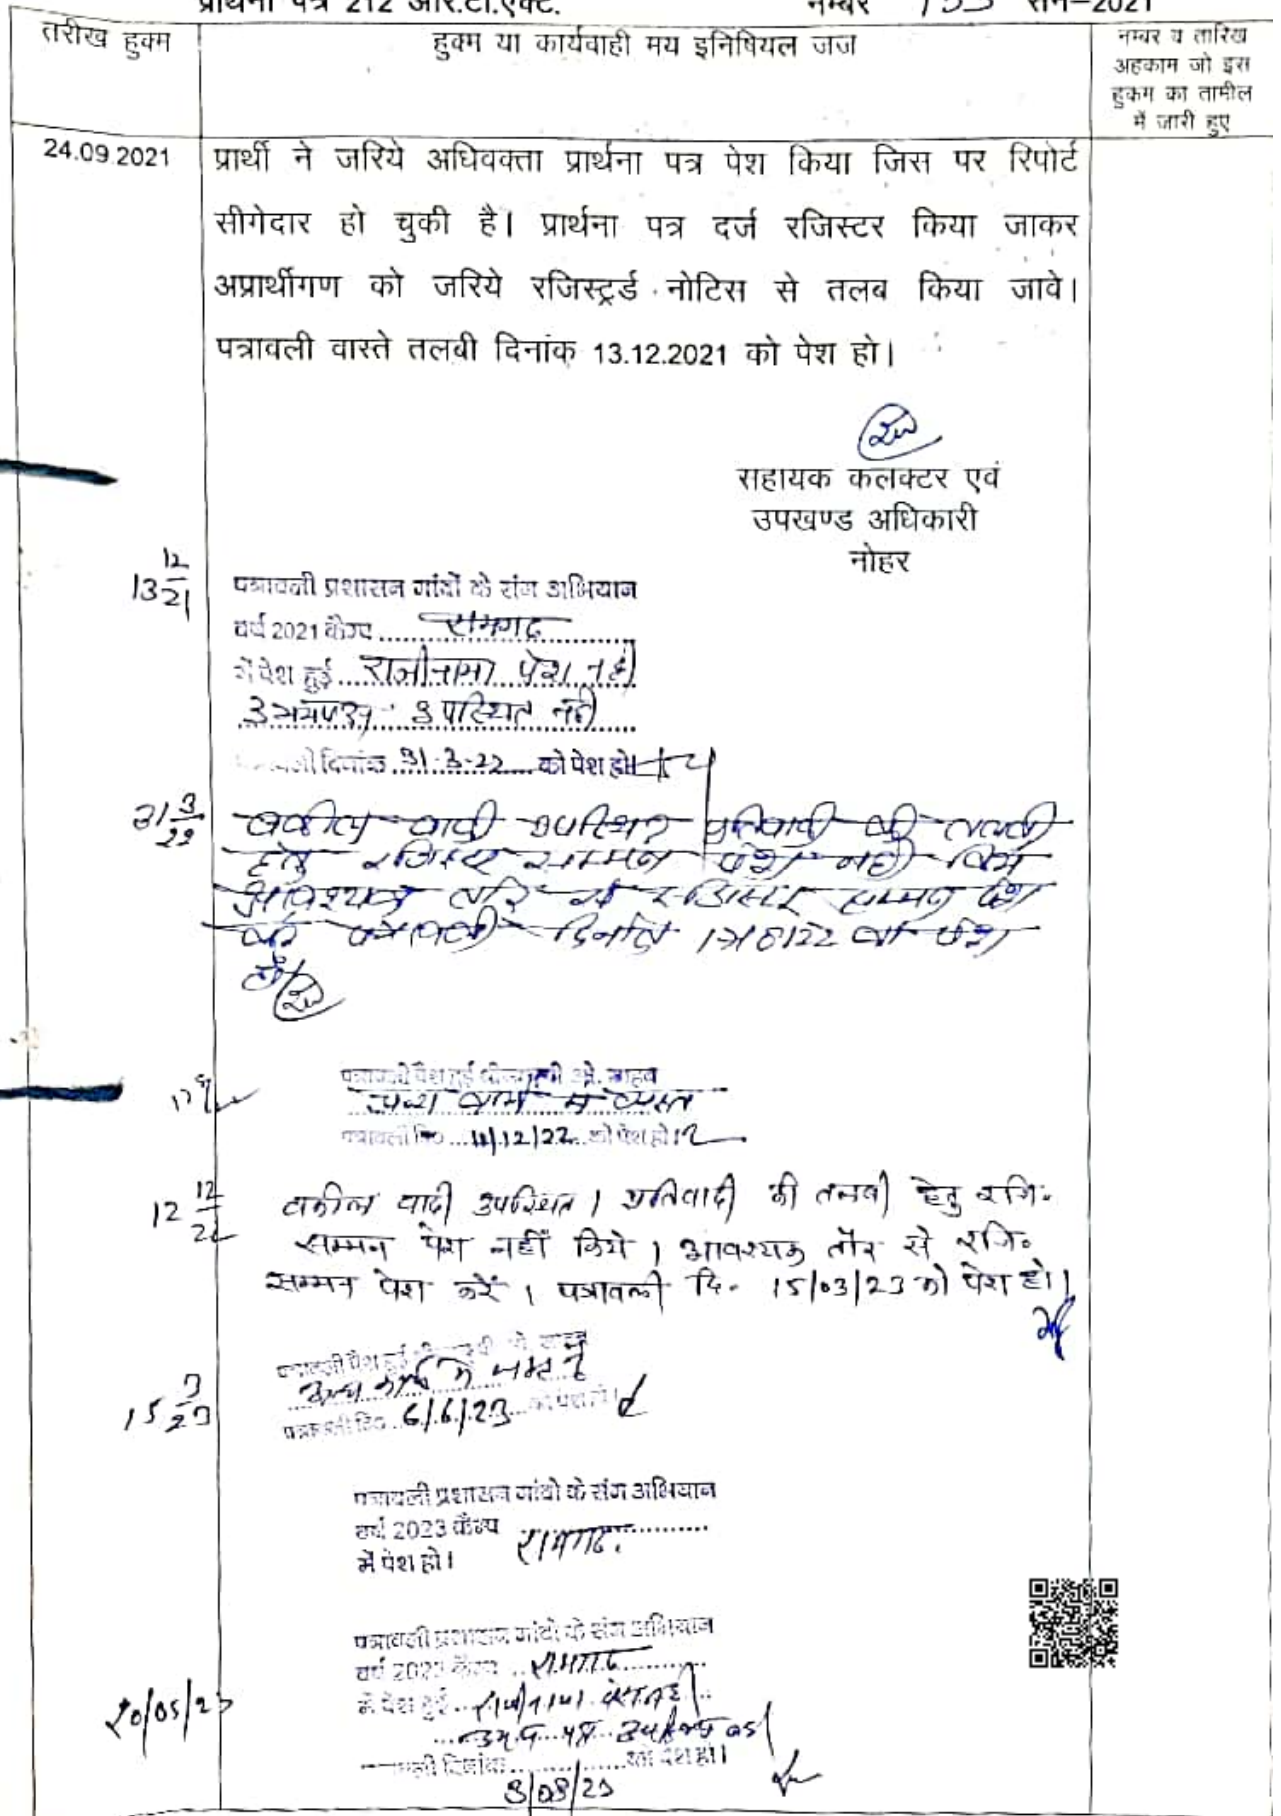 प्रार्थना पत्र 212 आर.टी.एक्ट. नम्बर 133 सन–2021
तरीख हुक्म
हुक्म या कार्यवाही मय इनिषियल जज
नम्बर व तारिख
अहकाम जो इस
हुकम का तामील
में जारी हुए
24.09.2021
प्रार्थी ने जरिये अधिवक्ता प्रार्थना पत्र पेश किया जिस पर रिपोर्ट
सीगेदार हो चुकी है। प्रार्थना पत्र दर्ज रजिस्टर किया जाकर
अप्रार्थीगण को जरिये रजिस्ट्रर्ड नोटिस से तलब किया जावे।
पत्रावली वास्ते तलबी दिनांक 13.12.2021 को पेश हो।
सहायक कलक्टर एवं
उपखण्ड अधिकारी
नोहर
13 12/21
पत्रावली प्रशासन गांवों के संग अभियान
वर्ष 2021 कैम्प रामगढ
में पेश हुई राजीनामा पेश नही
उभयपक्ष उपस्थित नही
पत्रावली दिनांक 31-3-22 को पेश हो।
31 3/22
वकील वादी उपस्थित प्रतिवादी की तलबी
हेतु रजिस्टर सम्मन पेश नही किये
आवश्यक तौर से रजिस्टर सम्मन पेश
करे पत्रावली दिनांक को पेश
हो।
पत्रावली पेश हुई
अन्य कार्य में व्यस्त
पत्रावली दि0 12/12/22 को पेश हो।
12 12/22
वकील वादी उपस्थित। प्रतिवादी की तलबी हेतु रजि.
सम्मन पेश नहीं किये। आवश्यक तौर से रजि.
सम्मन पेश करें। पत्रावली दि. 15/03/23 को पेश हो।
15 3/23
पत्रावली पेश हुई
अन्य कार्य में व्यस्त
पत्रावली दि0 6/6/23 को पेश हो।
पत्रावली प्रशासन गांवो के संग अभियान
वर्ष 2023 कैम्प रामगढ.
में पेश हो।
20/05/23
पत्रावली प्रशासन गांवो के संग अभियान
वर्ष 2023 कैम्प रामगढ
में पेश हुई राजीनामा पेश नही
उभय पक्ष
पत्रावली दिनांक को पेश हो।
3/08/23